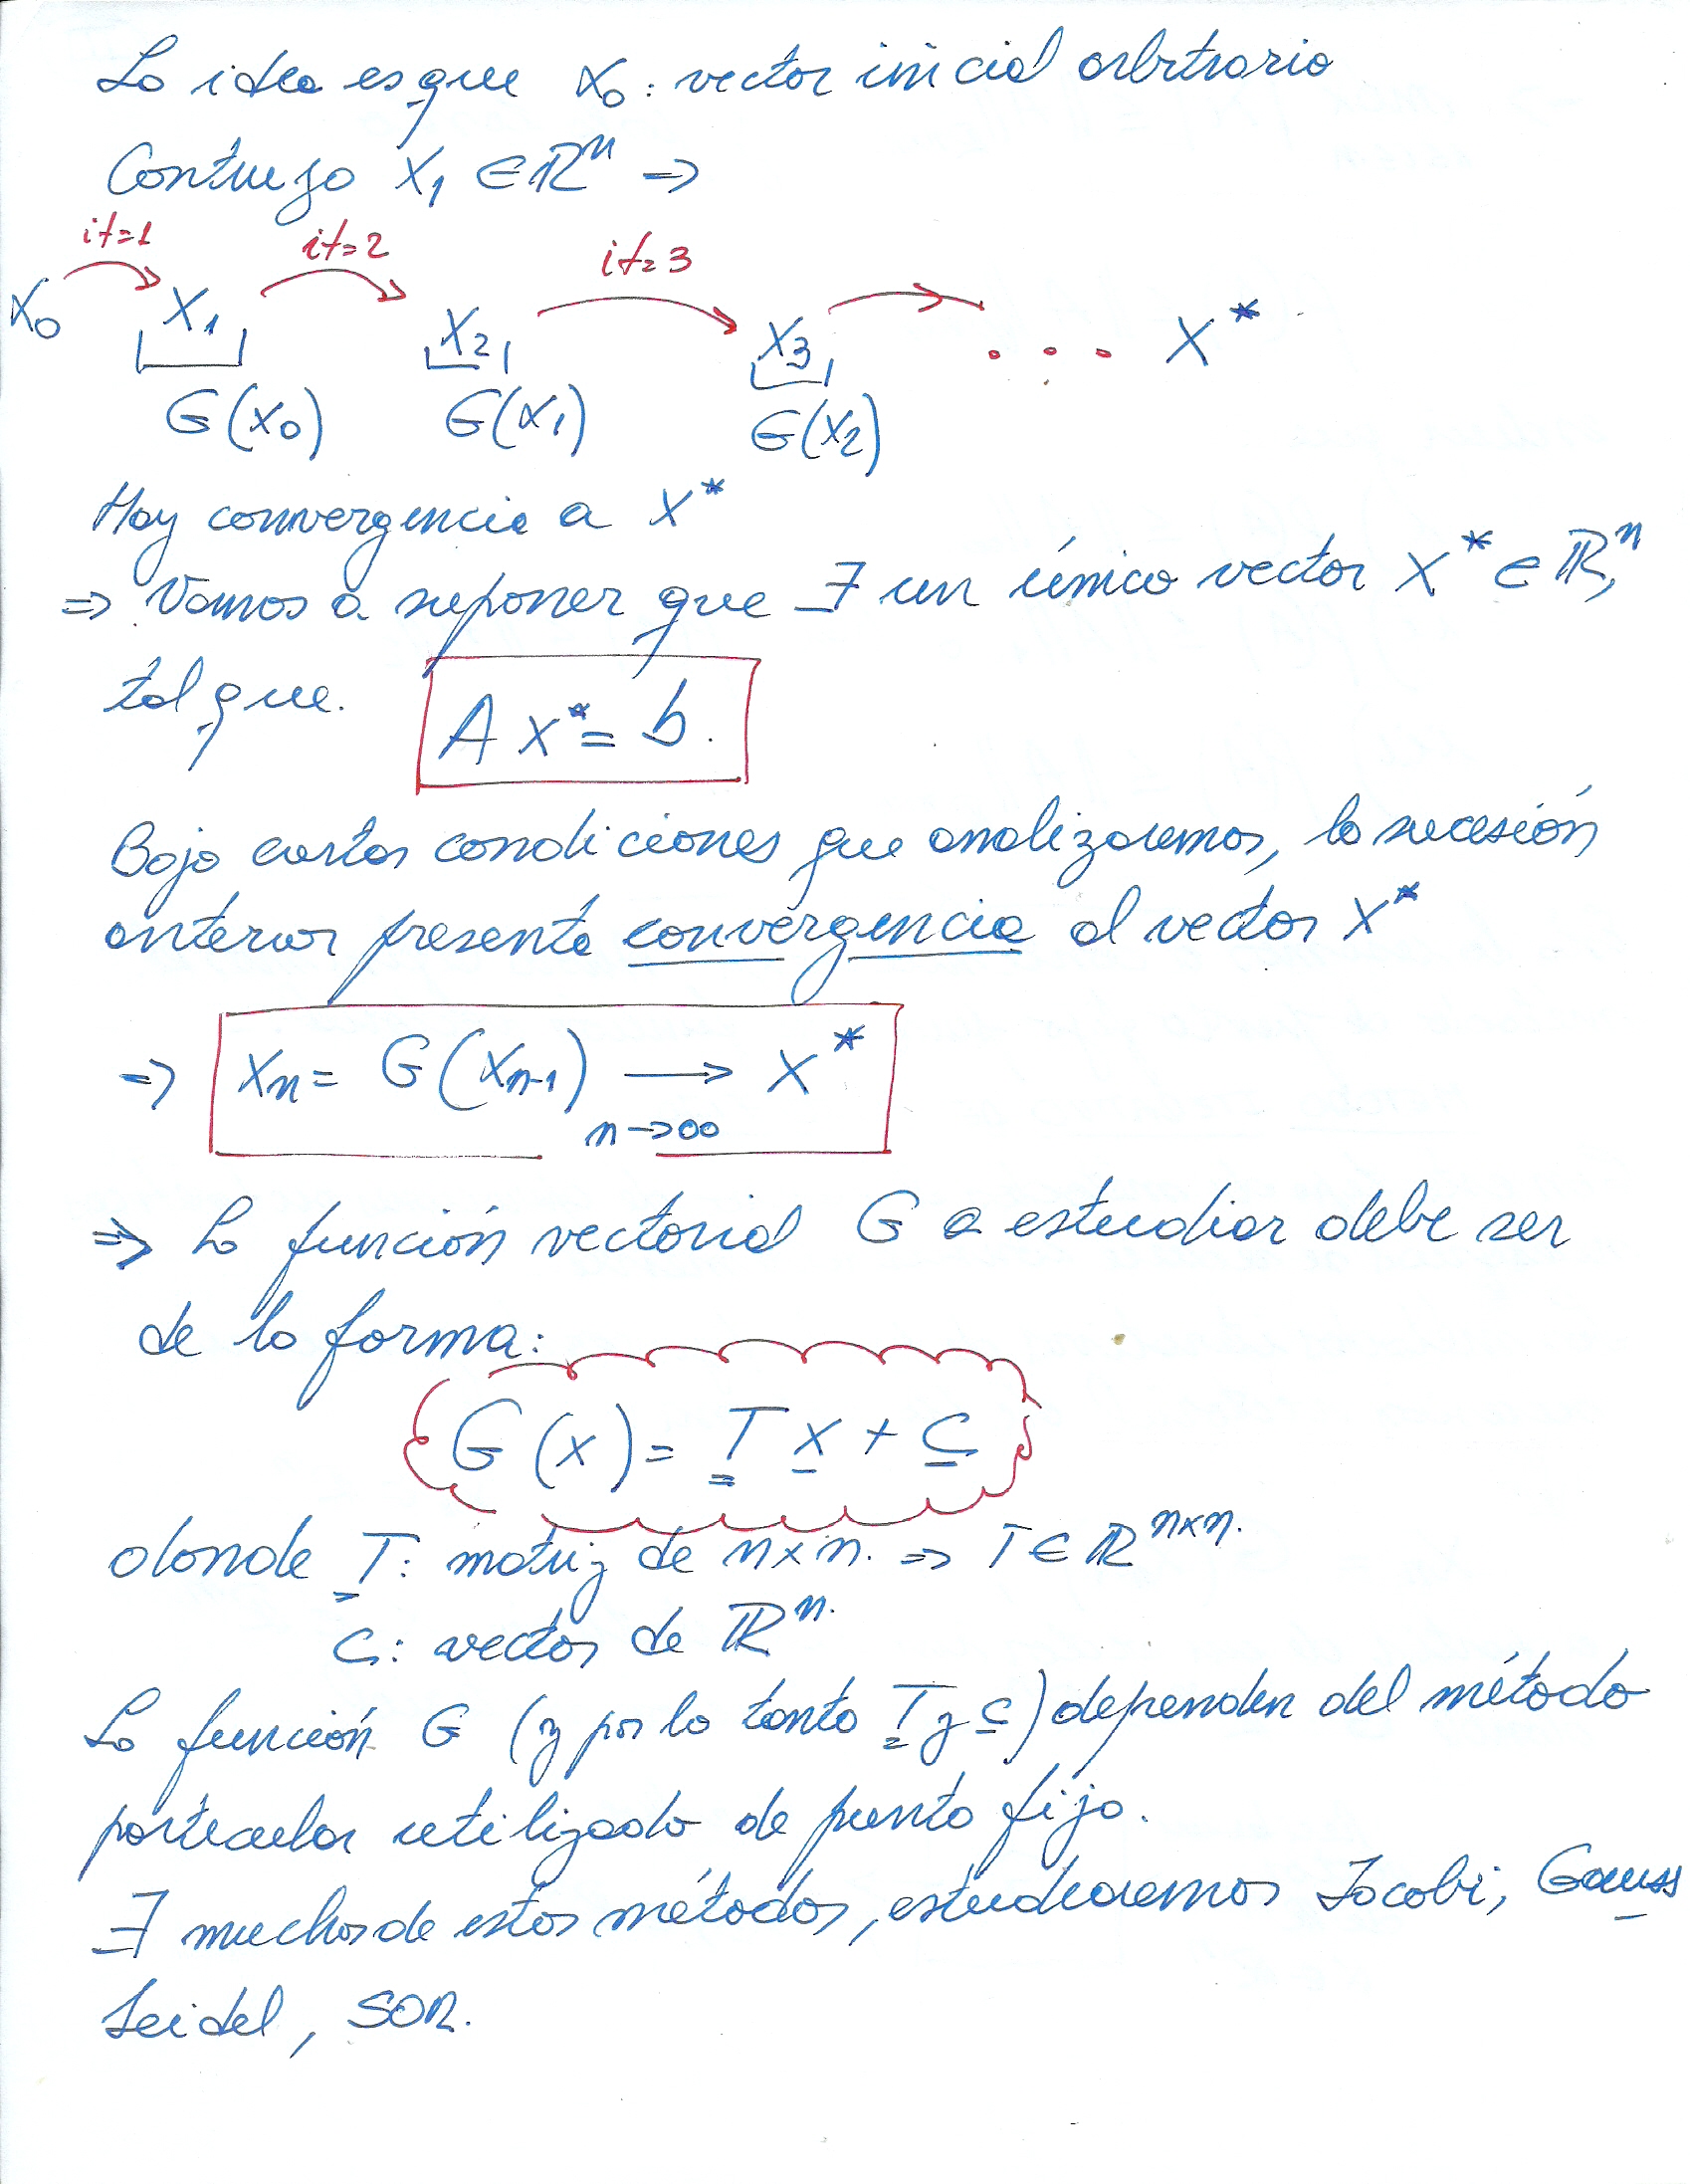 La idea es que X₀: vector inicial arbitrario
Contruyo X₁ ∈ ℝⁿ ⇒
it=1 it=2 it=3
X₀ X₁ X₂ X₃ ... X*
G(X₀) G(X₁) G(X₂)
Hay convergencia a X*
⇒ Vamos a suponer que ∃ un único vector X* ∈ ℝⁿ,
tal que. A X* = b.
Bajo ciertas condiciones que analizaremos, la sucesión
anterior presenta convergencia al vector X*
⇒ Xn = G(Xn-1) → X*
n→∞
⇒ La función vectorial G a estudiar debe ser
de la forma:
G(X) = T X + C
donde T: matriz de n×n. ⇒ T ∈ ℝⁿˣⁿ.
C: vector de ℝⁿ.
La función G (y por lo tanto T y C) dependen del método
particular utilizado de punto fijo.
∃ muchos de estos métodos, estudiaremos Jacobi, Gauss
Seidel, SOR.